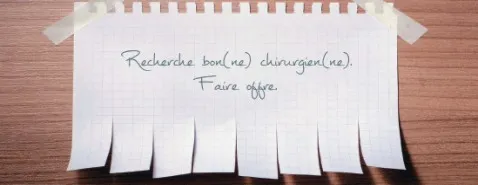 Recherche bon(ne) chirurgien(ne).
Faire offre.